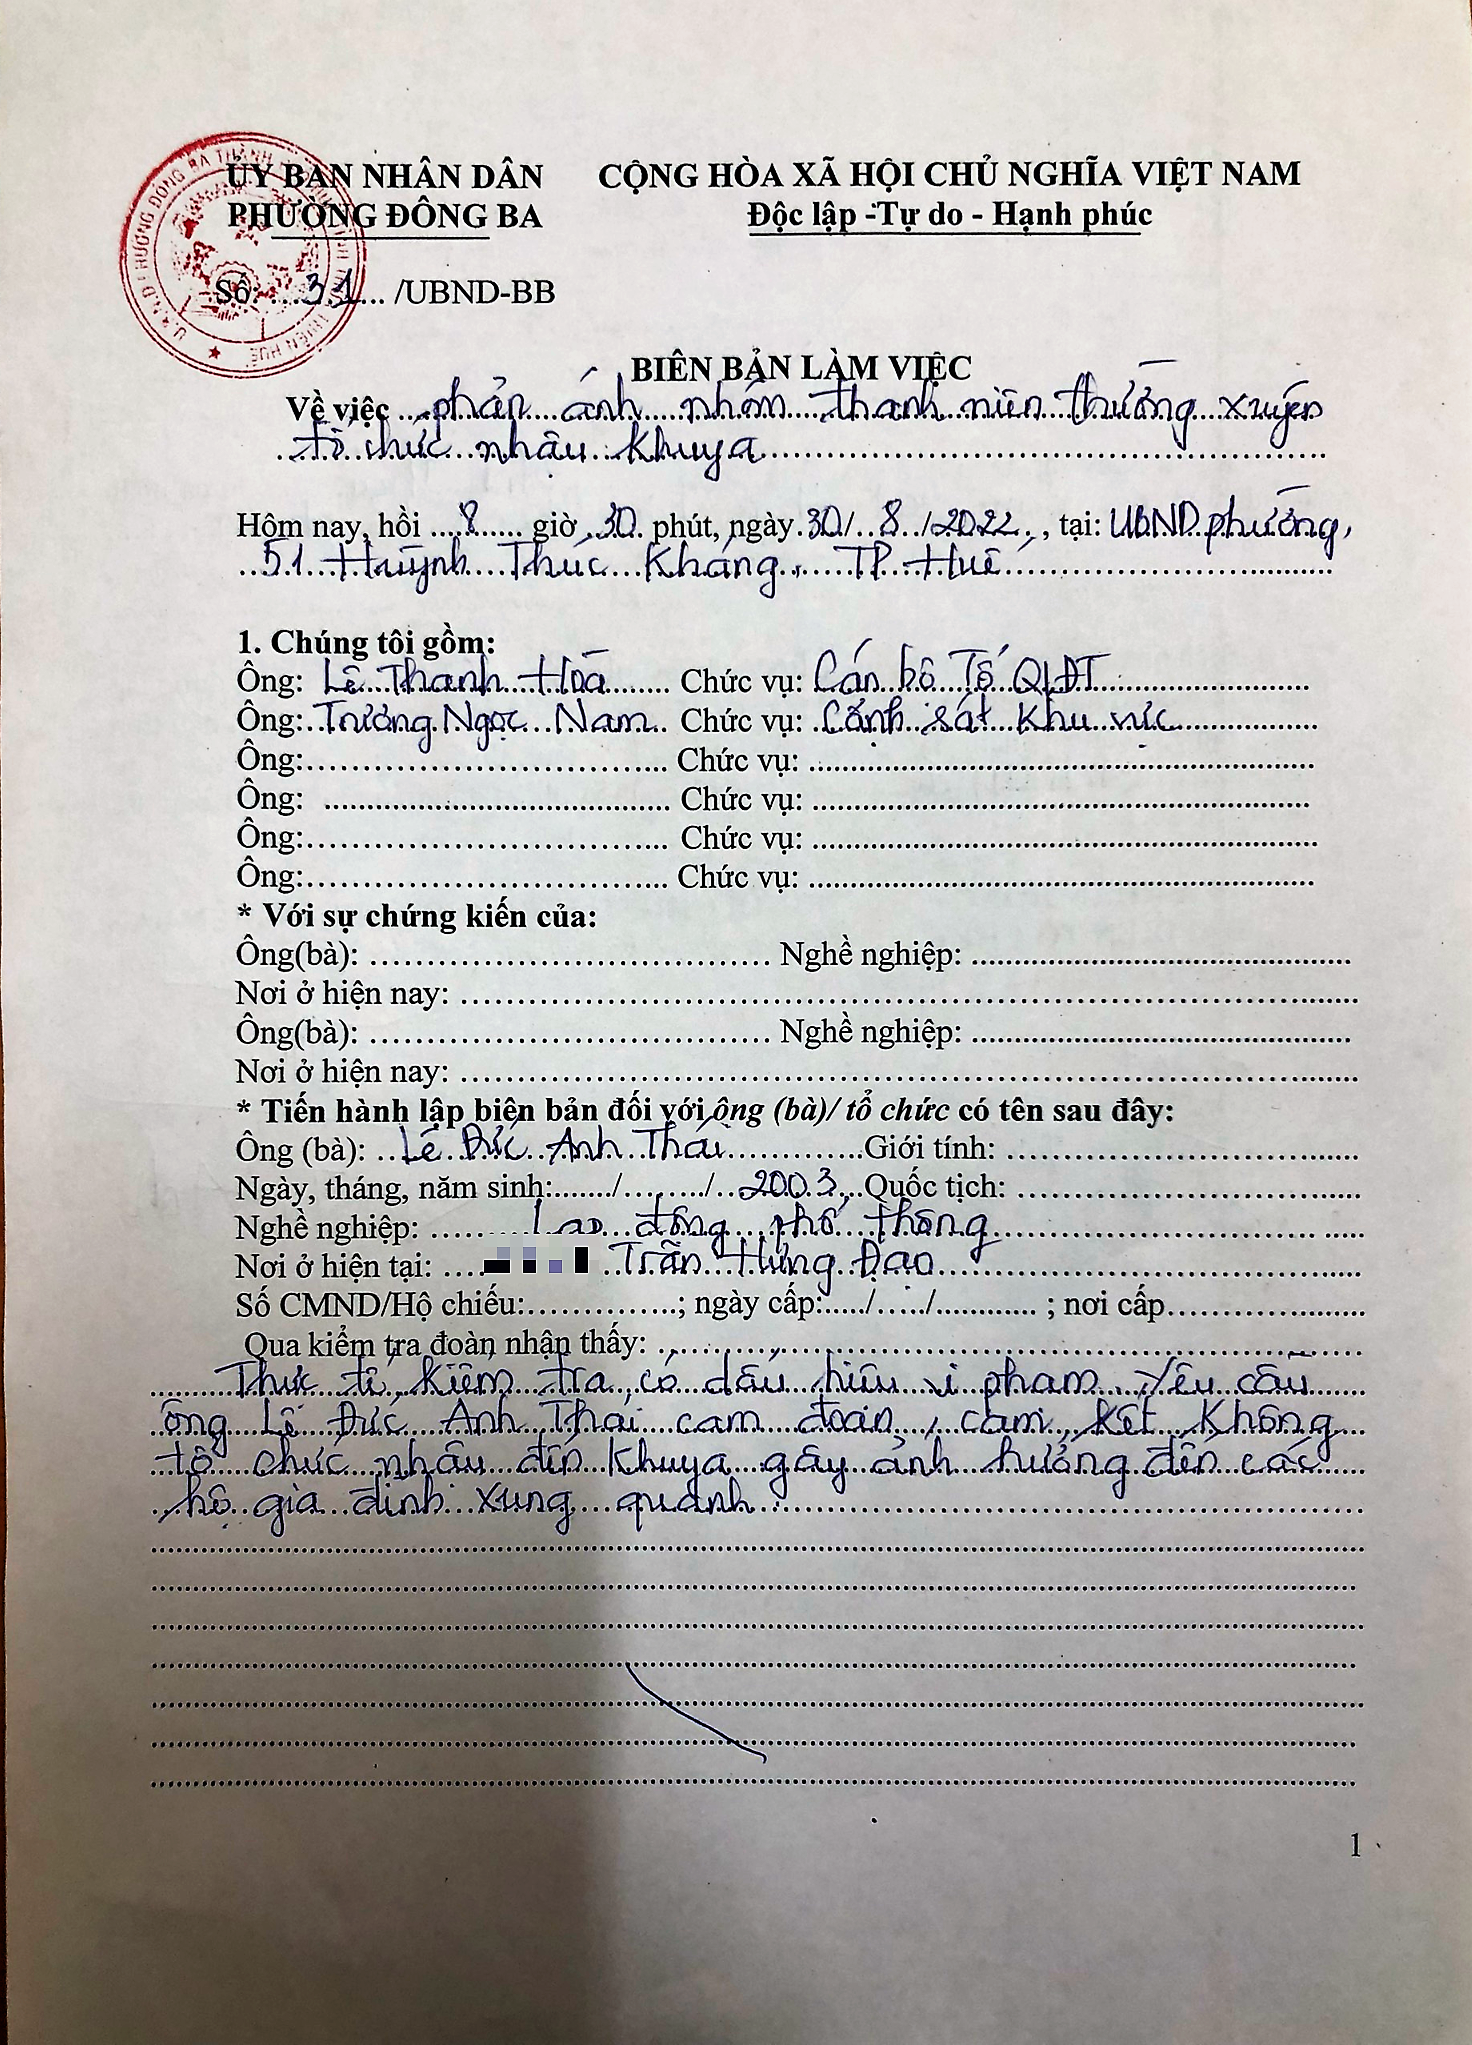 ỦY BAN NHÂN DÂN CỘNG HÒA XÃ HỘI CHỦ NGHĨA VIỆT NAM
PHƯỜNG ĐÔNG BA Độc lập -Tự do - Hạnh phúc
Số: ...31... /UBND-BB
BIÊN BẢN LÀM VIỆC
Về việc phản ánh nhóm thanh niên thường xuyên
tổ chức nhậu khuya
Hôm nay, hồi 8 giờ 30 phút, ngày 30/ 8 /2022, tại: UBND phường,
51 Huỳnh Thúc Kháng, TP Huế
1. Chúng tôi gồm:
Ông: Lê Thanh Hoà Chức vụ: Cán bộ Tổ QLĐT
Ông: Trương Ngọc Nam Chức vụ: Cảnh sát khu vực
Ông: Chức vụ:
Ông: Chức vụ:
Ông: Chức vụ:
Ông: Chức vụ:
* Với sự chứng kiến của:
Ông(bà): Nghề nghiệp:
Nơi ở hiện nay:
Ông(bà): Nghề nghiệp:
Nơi ở hiện nay:
* Tiến hành lập biên bản đối với ông (bà)/ tổ chức có tên sau đây:
Ông (bà): Lê Đức Anh Thái Giới tính:
Ngày, tháng, năm sinh: / / 2003 Quốc tịch:
Nghề nghiệp: Lao động phổ thông
Nơi ở hiện tại: Trần Hưng Đạo
Số CMND/Hộ chiếu: ; ngày cấp: / / ; nơi cấp
Qua kiểm tra đoàn nhận thấy:
Thực tế kiểm tra, có dấu hiệu vi phạm. Yêu cầu
ông Lê Đức Anh Thái cam đoan, cam kết không
tổ chức nhậu đến khuya gây ảnh hưởng đến các
hộ gia đình xung quanh
1